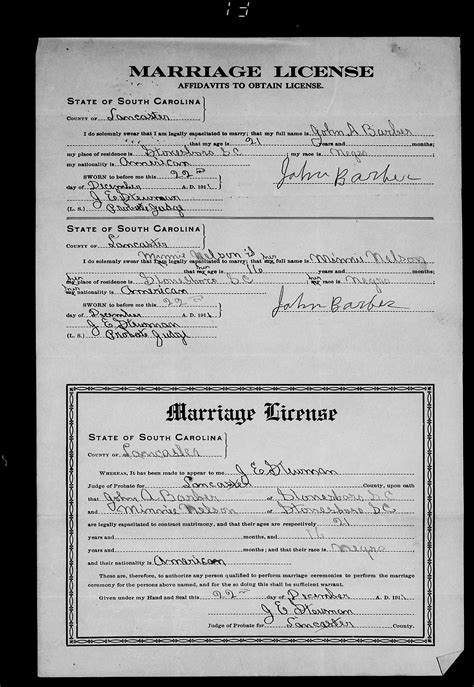 13
MARRIAGE LICENSE
AFFIDAVITS TO OBTAIN LICENSE.
STATE OF SOUTH CAROLINA }
COUNTY OF Lancaster
I do solemnly swear that I am legally capacitated to marry; that my full name is John A Barber
that my age is 21 years and months;
my place of residence is Stonesboro S.C ; my race is Negro
my nationality is American
SWORN to before me this 22nd John Barber
day of December A. D. 191
J E Stewman
(L. S.) Probate Judge
STATE OF SOUTH CAROLINA }
COUNTY OF Lancaster
Minnie Nelson is her
I do solemnly swear that I am legally capacitated to marry; that my full name is Minnie Nelson
her that my age is 16 years and months;
her my place of residence is Stonesboro S C her ; my race is Negro
her my nationality is American
SWORN to before me this 22nd John Barber
day of December A. D. 191
J E Stewman
(L. S.) Probate Judge
Marriage License
STATE OF SOUTH CAROLINA }
COUNTY OF Lancaster
WHEREAS, It has been made to appear to me J E Stewman
Judge of Probate for Lancaster County, upon oath
that John A Barber of Stonesboro S C
and Minnie Nelson of Stonesboro S C
are legally capacitated to contract matrimony, and that their ages are respectively 21
years and months, and 16
years and months; and that their race is Negro
and their nationality is American
These are, therefore, to authorize any person qualified to perform marriage ceremonies to perform the marriage
ceremony for the persons above named, and for the so doing this shall be sufficient warrant.
Given under my Hand and Seal this 22nd day of December A. D. 191
J E Stewman
Judge of Probate for Lancaster County.